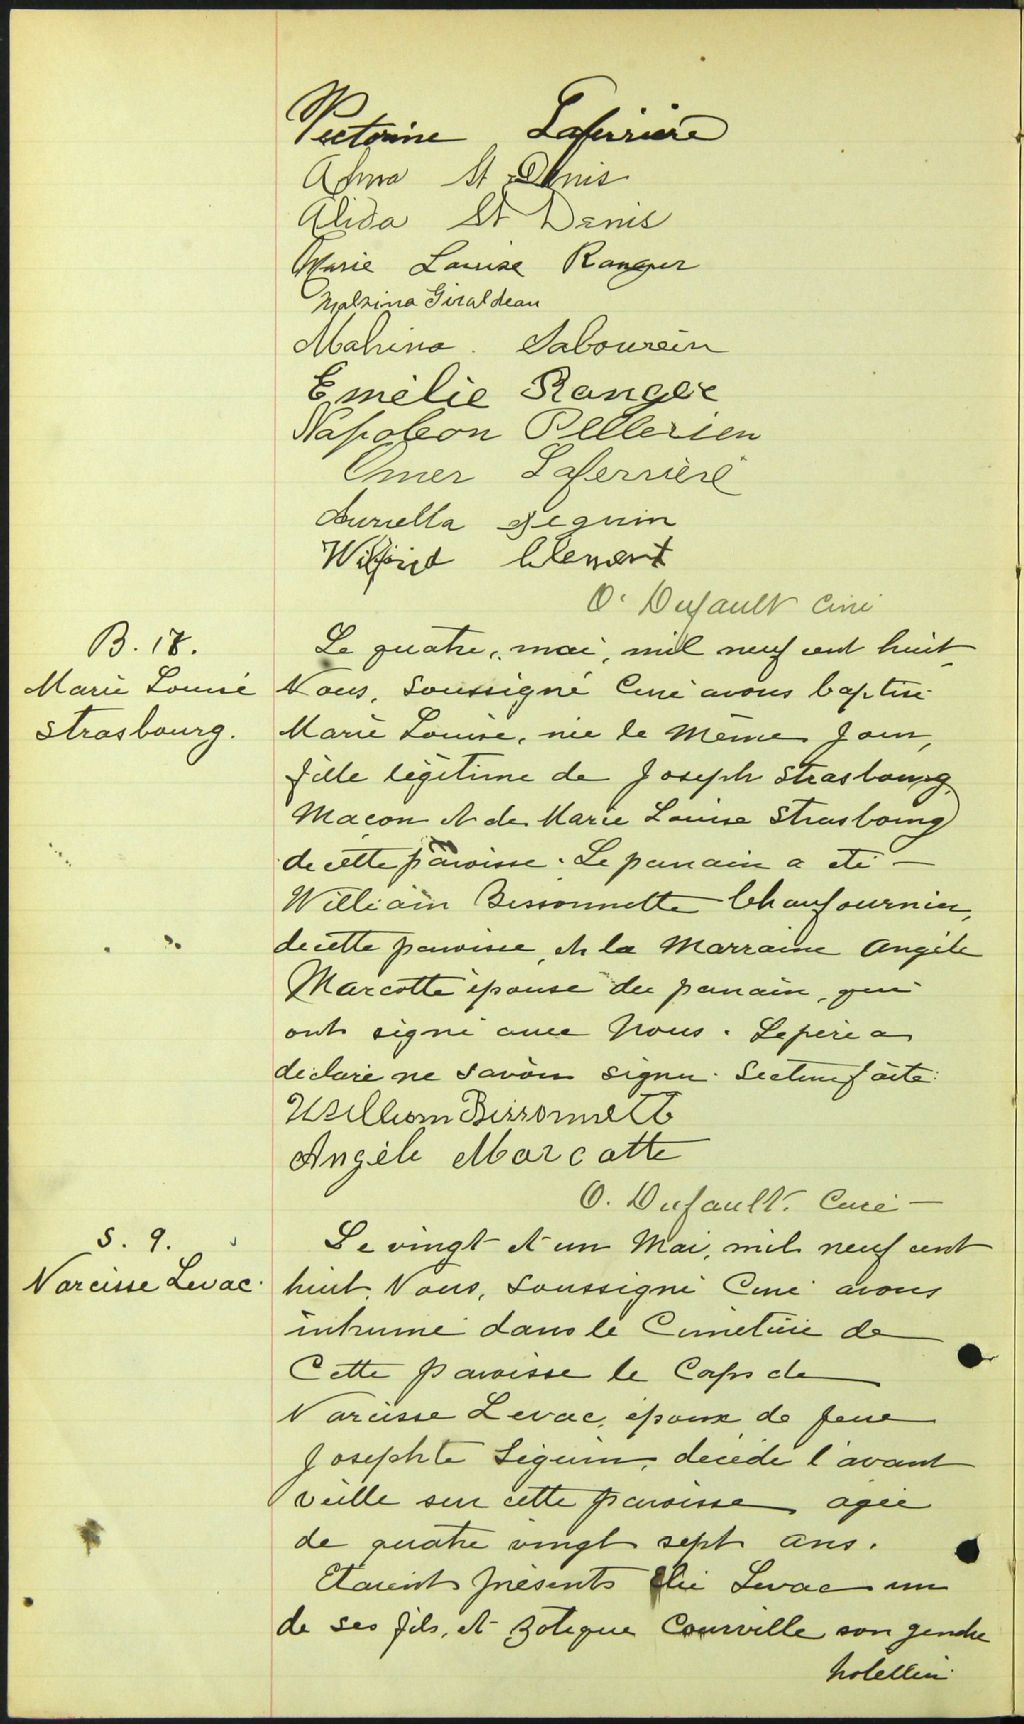 Victorine Laferrière
Alma St Denis
Alida St Denis
Marie Louise Ranger
Malvina Giraldeau
Malvina Sabourin
Emélie Ranger
Napoleon Pellerien
Omer Laferrière
Auriella Seguin
Wilfrid Clement
O. Dufault Curé
B. 18.
Marie Louise
Strasbourg.
Le quatre, mai, mil neuf cent huit
Nous, soussigné Curé avons baptisé
Marie Louise, née le même jour,
fille légitime de Joseph Strasbourg
Maçon et de Marie Louise Strasbourg
de cette paroisse. Le parrain a été —
William Bissonnette Chaufournier,
de cette paroisse, et la Marraine Angèle
Marcotte épouse du parrain, qui
ont signé avec Nous. Le père a
déclaré ne savoir signer. Lecture faite.
William Bissonnett
Angèle Marcotte
O. Dufault. Curé —
S. 9.
Narcisse Levac.
Le vingt et un Mai, mil neuf cent
huit, Nous, soussigné Curé avons
inhumé dans le Cimetière de
Cette paroisse le Corps de
Narcisse Levac, époux de feue
Josephte Séguin, décédé l'avant
veille sur cette paroisse agée
de quatre vingt sept ans.
Etaient présents Elie Levac un
de ses fils, et Zotique Courville son gendre